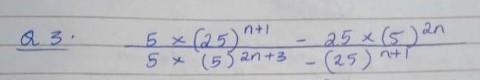 Q 3. 5 × (25)^{n+1} - 25 × (5)^{2n}
5 × (5)^{2n+3} - (25)^{n+1}